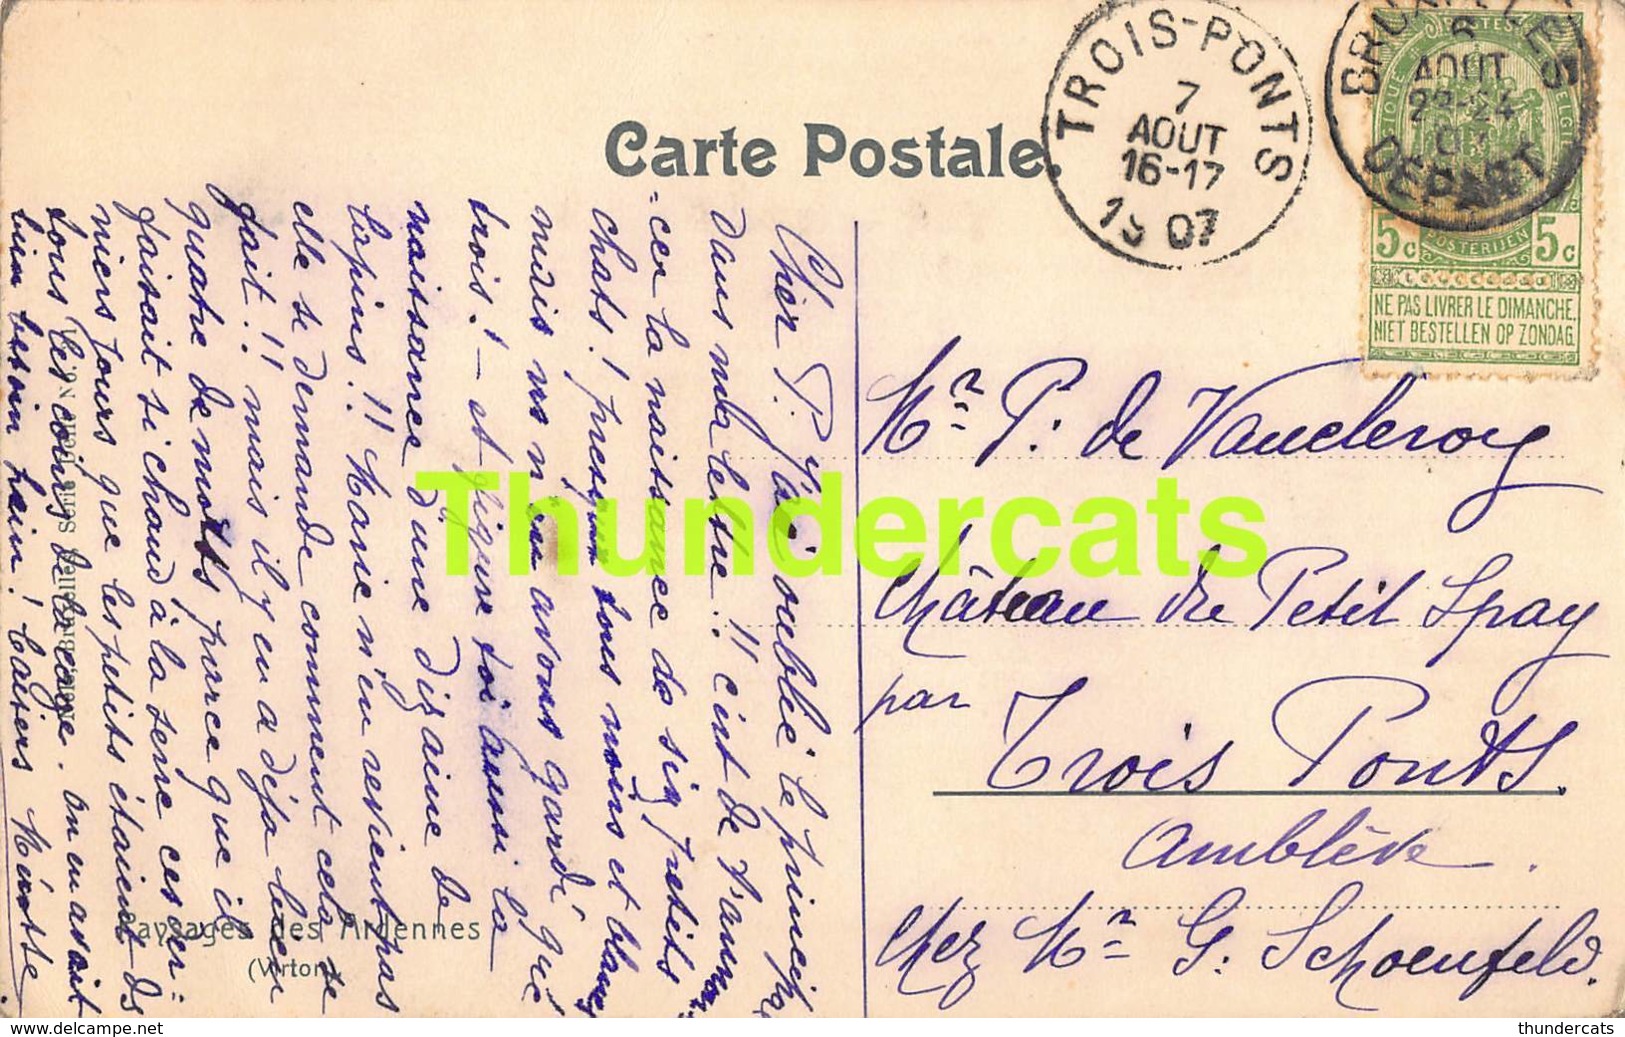 Carte Postale.
TROIS-PONTS
7
AOUT
16-17
1907
BRUXELLES
6
AOUT
22-24
DEPART
POSTERIJEN
5c 5c
NE PAS LIVRER LE DIMANCHE.
NIET BESTELLEN OP ZONDAG.
Cher P. J'ai oublié le principal
dans ma lettre. !! c'est de t'annon-
-cer la naissance de six petits
chats! presque tous noirs et blancs
mais ns n'en avons gardé que
trois! - et figure toi aussi la
naissance d'une dizaine de
lapins!! Marie n'en revient pas
elle se demande comment cela se
fait!! mais il y en a déjà bien
quatre de morts parce que il
faisait si chaud à la serre ces der-
niers jours que les petits étaient ds
tous les coins de la cage. on en avait
bien besoin hein! baisers
Mr P: de Vaucleroy
Château du Petit Spay
par
Trois Ponts.
Amblève.
chez Mr G: Schoenfeld.
Paysages des Ardennes
(Virton)
Thundercats
thundercats
www.delcampe.net